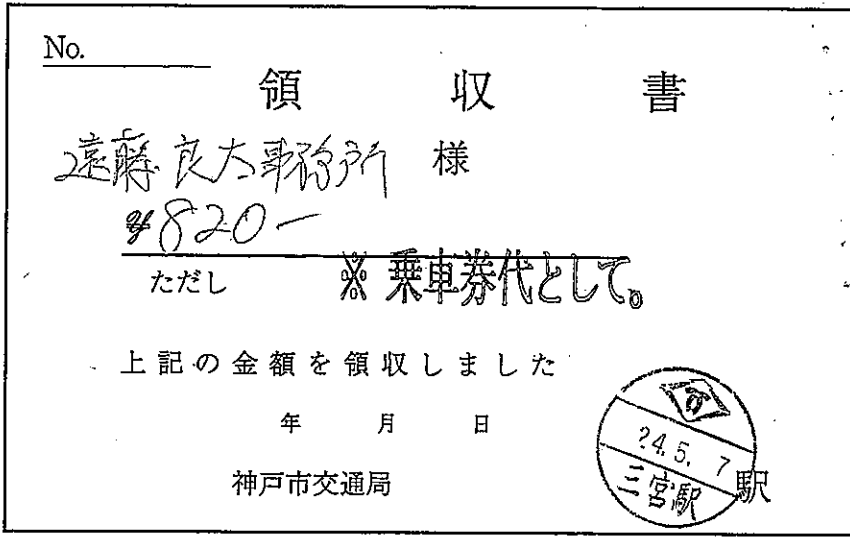 No.
領収書
遠藤良太事務所 様
¥820-
ただし ※乗車券代として。
上記の金額を領収しました
年 月 日
24.5.7
神戸市交通局 三宮駅 駅